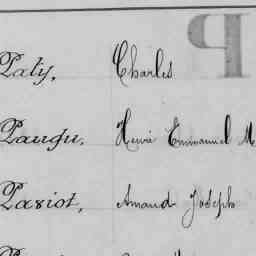 Paty, Charles
Paugu, Henri Emmanuel M
Pariot, Amand Joseph